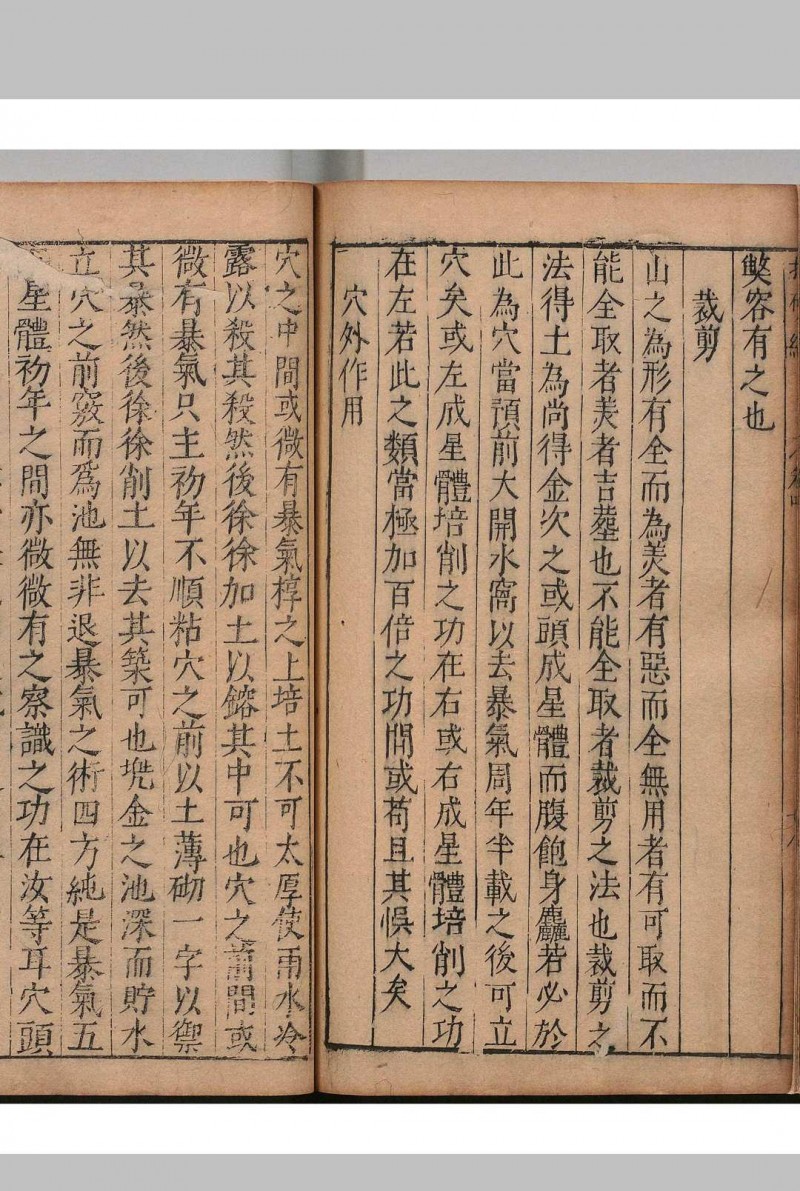 獘容有之也
裁剪
山之為形有全而為美者有惡而全無用者有可取而不
能全取者美者吉塟也不能全取者裁剪之法也裁剪之
法得土為尚得金次之或頭成星體而腹飽身麤若必於
此為穴當預前大開水窩以去暴氣周年半載之後可立
穴矣或左成星體培削之功在右或右成星體培削之功
在左若此之類當極加百倍之功間或苟且其悞大矣
穴外作用
穴之中間或微有暴氣椁之上培土不可太厚使雨水冷
露以殺其殺然後徐徐加土以鎔其中可也穴之前間或
微有暴氣只主初年不順粘穴之前以土薄砌一字以禦
其暴然後徐徐削土以去其築可也堯金之池深而貯水
立穴之前窽而爲池無非退暴氣之術四方純是暴氣五
星體初年之間亦微微有之察識之功在汝等耳穴頭